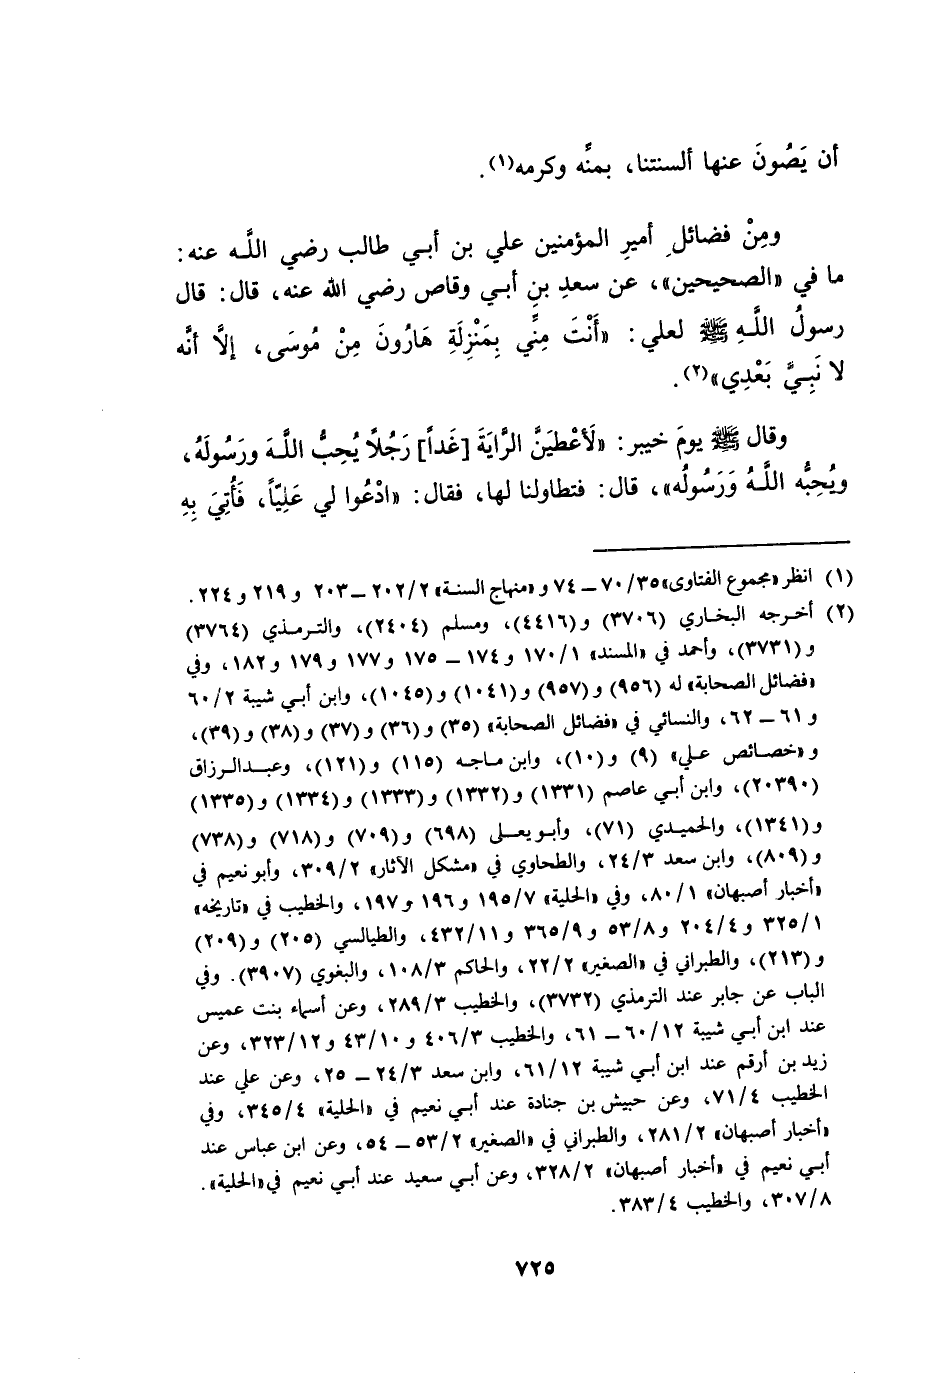 أن يَصُونَ عنها ألسنتنا، بمنِّه وكرمه(١).
ومِنْ فضائلِ أميرِ المؤمنين علي بن أبي طالب رضي اللَّه عنه:
ما في «الصحيحين»، عن سعدِ بنِ أبي وقاص رضي الله عنه، قال: قال
رسولُ اللَّهِ ﷺ لعلي: «أَنْتَ مِنِّي بِمَنْزِلَةِ هَارُونَ مِنْ مُوسَى، إلاَّ أنَّه
لا نَبِيَّ بَعْدِي»(٢).
وقال ﷺ يومَ خيبر: «لَأعْطِيَنَّ الرَّايَةَ [غَداً] رَجُلاً يُحِبُّ اللَّهَ ورَسُولَهُ،
ويُحِبُّه اللَّهُ وَرَسُولُه»، قال: فتطاولنا لها، فقال: «ادْعُوا لي عَلِيّاً، فَأُتِيَ بِهِ
(١) انظر «مجموع الفتاوى» ٧٠/٣٥ – ٧٤ و «منهاج السنة» ٢٠٢/٢ – ٢٠٣ و ٢١٩ و ٢٢٤.
(٢) أخرجه البخاري (٣٧٠٦) و(٤٤١٦)، ومسلم (٢٤٠٤)، والترمذي (٣٧٦٤)
و (٣٧٣١)، وأحمد في «المسند» ١٧٠/١ و ١٧٤ – ١٧٥ و ١٧٧ و ١٧٩ و ١٨٢، وفي
«فضائل الصحابة» له (٩٥٦) و(٩٥٧) و(١٠٤١) و(١٠٤٥)، وابن أبي شيبة ٦٠/٢
و ٦١ – ٦٢، والنسائي في «فضائل الصحابة» (٣٥) و(٣٦) و(٣٧) و(٣٨) و(٣٩)،
و «خصائص علي» (٩) و(١٠)، وابن ماجه (١١٥) و(١٢١)، وعبدالرزاق
(٢٠٣٩٠)، وابن أبي عاصم (١٣٣١) و(١٣٣٢) و(١٣٣٣) و(١٣٣٤) و(١٣٣٥)
و(١٣٤١)، والحميدي (٧١)، وأبويعلى (٦٩٨) و(٧٠٩) و(٧١٨) و(٧٣٨)
و(٨٠٩)، وابن سعد ٢٤/٣، والطحاوي في «مشكل الآثار» ٣٠٩/٢، وأبو نعيم في
«أخبار أصبهان» ٨٠/١، وفي «الحلية» ١٩٥/٧ و ١٩٦ و ١٩٧، والخطيب في «تاريخه»
٣٢٥/١ و ٢٠٤/٤ و ٥٣/٨ و ٣٦٥/٩ و ٤٣٢/١١، والطيالسي (٢٠٥) و(٢٠٩)
و(٢١٣)، والطبراني في «الصغير» ٢٢/٢، والحاكم ١٠٨/٣، والبغوي (٣٩٠٧). وفي
الباب عن جابر عند الترمذي (٣٧٣٢)، والخطيب ٢٨٩/٣، وعن أسماء بنت عميس
عند ابن أبي شيبة ٦٠/١٢ – ٦١، والخطيب ٤٠٦/٣ و ٤٣/١٠ و ٣٢٣/١٢، وعن
زيد بن أرقم عند ابن أبي شيبة ٦١/١٢، وابن سعد ٢٤/٣ – ٢٥، وعن علي عند
الخطيب ٧١/٤، وعن حبيش بن جنادة عند أبي نعيم في «الحلية» ٣٤٥/٤، وفي
«أخبار أصبهان» ٢٨١/٢، والطبراني في «الصغير» ٥٣/٢ – ٥٤، وعن ابن عباس عند
أبي نعيم في «أخبار أصبهان» ٣٢٨/٢، وعن أبي سعيد عند أبي نعيم في «الحلية».
٣٠٧/٨، والخطيب ٣٨٣/٤.
٧٢٥